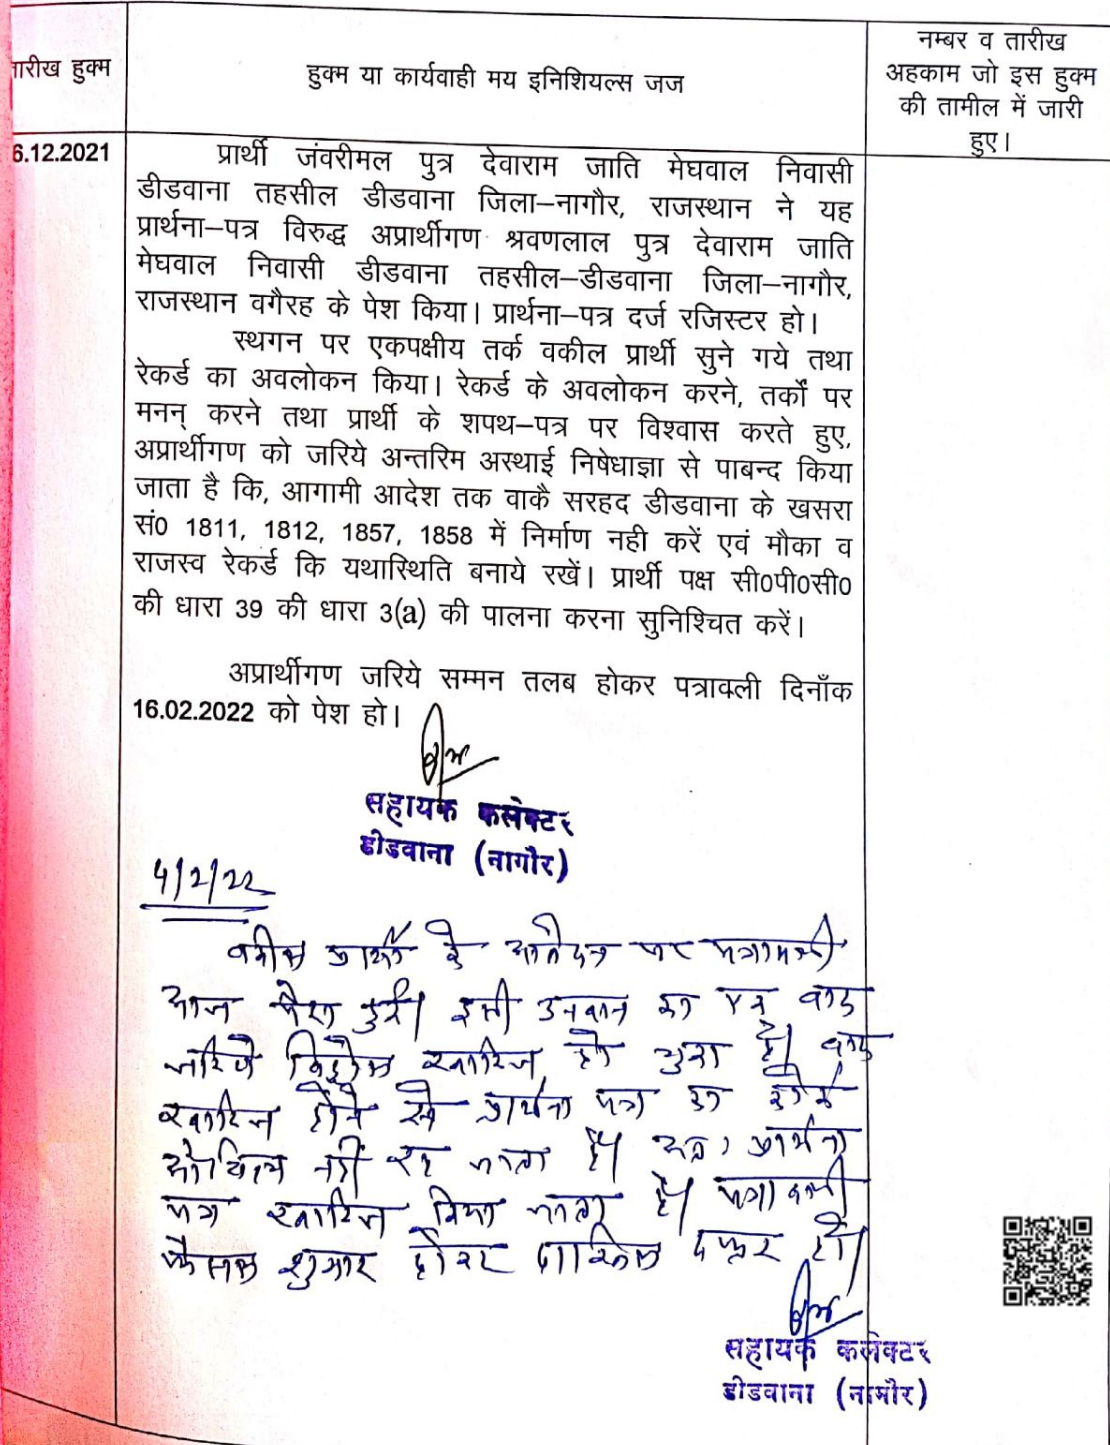 तारीख हुक्म
हुक्म या कार्यवाही मय इनिशियल्स जज
नम्बर व तारीख
अहकाम जो इस हुक्म
की तामील में जारी
हुए।
6.12.2021
प्रार्थी जंवरीमल पुत्र देवाराम जाति मेघवाल निवासी
डीडवाना तहसील डीडवाना जिला–नागौर, राजस्थान ने यह
प्रार्थना–पत्र विरुद्ध अप्रार्थीगण श्रवणलाल पुत्र देवाराम जाति
मेघवाल निवासी डीडवाना तहसील–डीडवाना जिला–नागौर,
राजस्थान वगैरह के पेश किया। प्रार्थना–पत्र दर्ज रजिस्टर हो।
स्थगन पर एकपक्षीय तर्क वकील प्रार्थी सुने गये तथा
रेकर्ड का अवलोकन किया। रेकर्ड के अवलोकन करने, तर्कों पर
मनन् करने तथा प्रार्थी के शपथ–पत्र पर विश्वास करते हुए,
अप्रार्थीगण को जरिये अन्तरिम अस्थाई निषेधाज्ञा से पाबन्द किया
जाता है कि, आगामी आदेश तक वाकै सरहद डीडवाना के खसरा
सं0 1811, 1812, 1857, 1858 में निर्माण नही करें एवं मौका व
राजस्व रेकर्ड कि यथास्थिति बनाये रखें। प्रार्थी पक्ष सी0पी0सी0
की धारा 39 की धारा 3(a) की पालना करना सुनिश्चित करें।
अप्रार्थीगण जरिये सम्मन तलब होकर पत्रावली दिनाँक
16.02.2022 को पेश हो।
सहायक कलेक्टर
डीडवाना (नागौर)
4/2/22
वकील प्रार्थी के आवेदन पर पत्रावली
आज पेश हुई। इसी उनवान का वाद
जरिये विड्रोल खारिज हो चुका है। वाद
खारिज होने से प्रार्थना पत्र का कोई
औचित्य नहीं रह जाता है। अतः प्रार्थना
पत्र खारिज किया जाता है। पत्रावली
फैसल शुमार होकर दाखिल दफ्तर हो।
सहायक कलेक्टर
डीडवाना (नागौर)